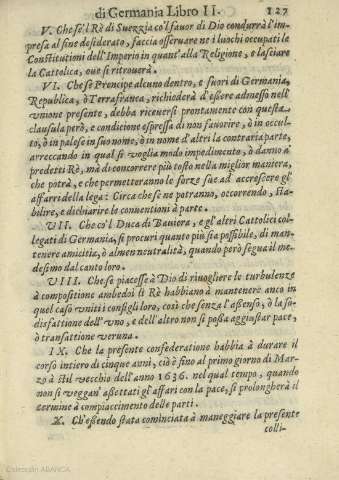 di Germania Libro II. 127
V. Che se'l Rè di Suezzia co'l fauor di Dio condurrà l'im-
presa al fine desiderato, faccia osseruare ne i luochi occupati le
Constitutioni dell'Imperio in quant'alla Religione, e lasciare
la Cattolica, oue si ritrouerà.
VI. Che se Prencipe alcuno dentro, e fuori di Germania,
Republica, ò Terrafranca, richiederà d'essere admesso nell'
vnione presente, debba riceuersi prontamente con questa
clausula però, e condicione espressa di non fauorire, ò in occul-
to, ò in palese in suo nome, ò in nome d'altri la contraria parte,
arreccando in qual si voglia modo impedimento, ò danno a'
predetti Rè, mà di concorrere più tosto nella miglior maniera,
che potrà, e che permetteranno le forze sue ad accrescere gl'
affari della lega: Circa che se ne potranno, occorrendo, sta-
bilire, e dichiarire le conuentioni à parte.
VII. Che co'l Duca di Bauiera, e gl'altri Cattolici col-
legati di Germania, si procuri quanto più sia possibile, di mante-
nere amicitia, ò almen neutralità, quando però segua il me-
desimo dal canto loro.
VIII. Che se piacesse à Dio di riuogliere le turbulenze
à compositione ambedoi li Rè habbiano à mantenere anco in
quel caso vniti consigli loro, così che senza l'assenso, ò la so-
disfattione dell'vno, e dell'altro non si possa aggiustar pace,
ò transattione veruna.
IX. Che la presente confederatione habbia à durare il
corso intiero di cinque anni, ciò è fino al primo giorno di Mar-
zo à stil vecchio dell'anno 1636. nel qual tempo, quando
non si veggan' assettati gl'affari con la pace, si prolongherà il
termine à compiaccimento delle parti.
X. Ch'essendo stata cominciata à maneggiare la presente
colli-
Colección ABANCA